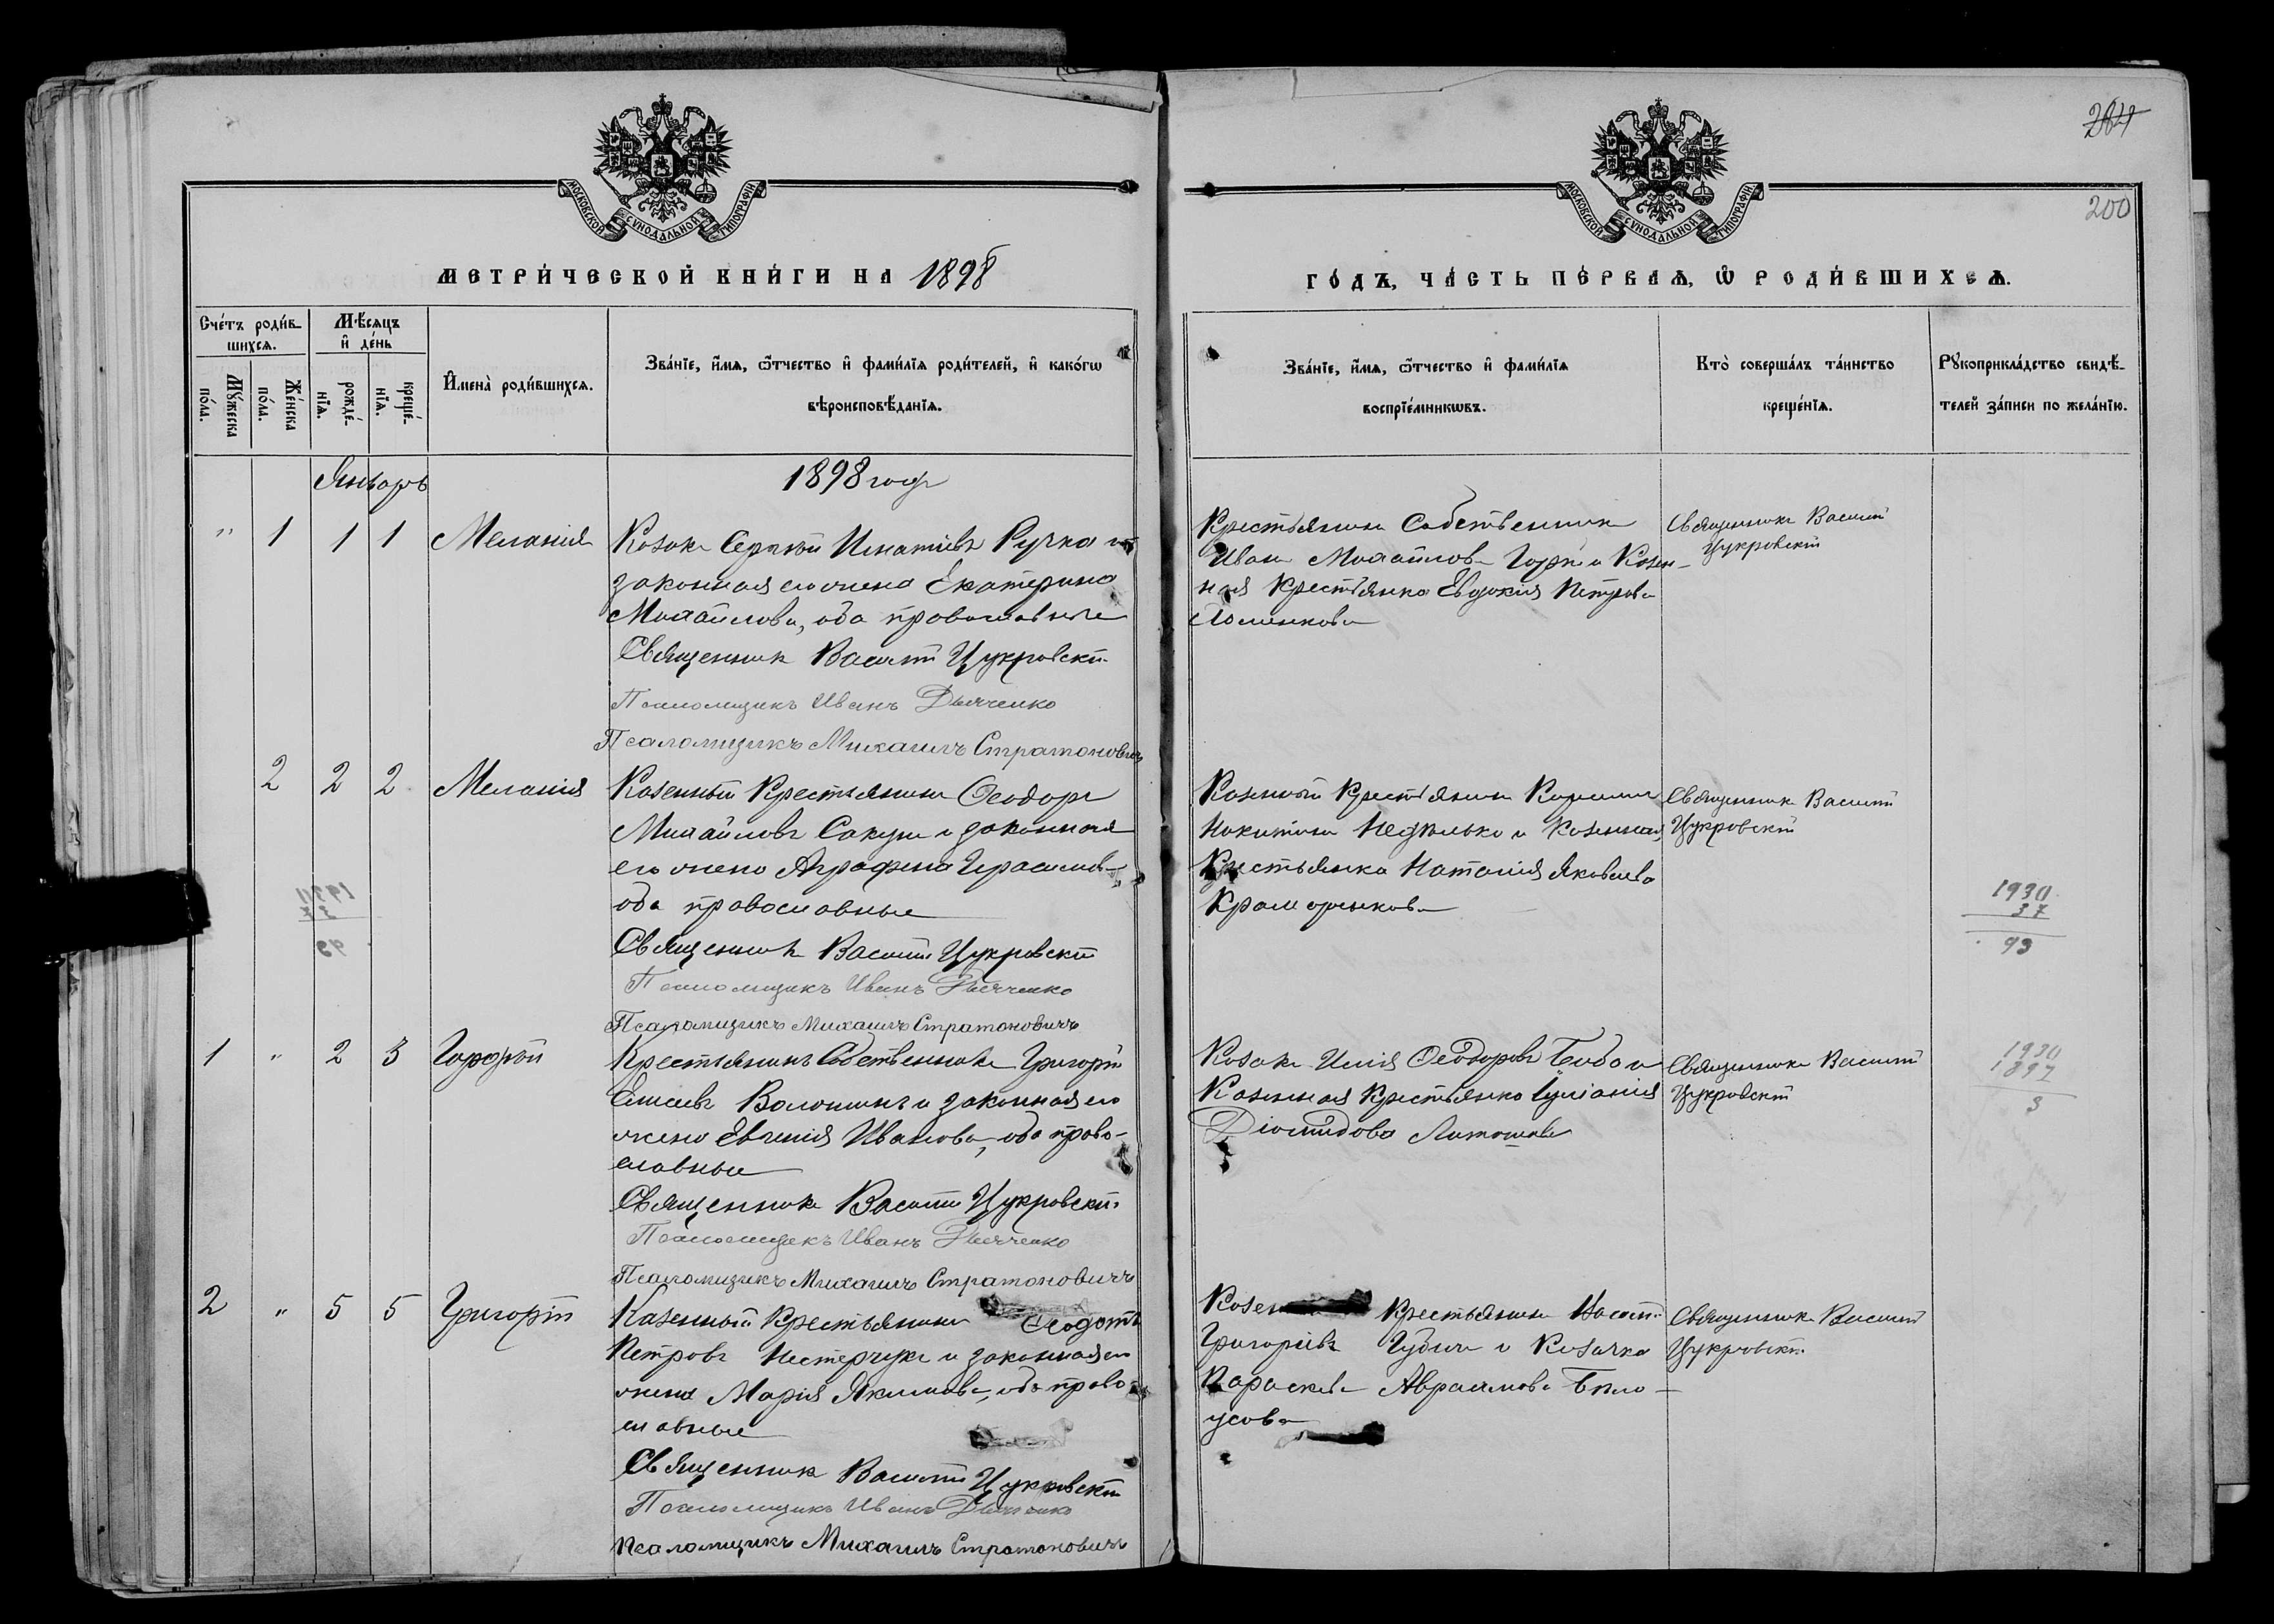 264
200
МОСКОВСКОЙ СѴНОДАЛЬНОЙ ТИПОГРАФІИ
МОСКОВСКОЙ СѴНОДАЛЬНОЙ ТИПОГРАФІИ
МЕТРИ́ЧЕСКОЙ КНИ́ГИ НА 1898
ГО́ДЪ, ЧА́СТЬ ПЕ́РВАѦ, Ѿ РОДИ́ВШИХСѦ.
Сче́тъ роди́в-
шихсѧ.
Мѣ́сѧцъ
и де́нь
Мꙋ́жеска
по́ла.
Же́нска
по́ла.
рожде́-
нїѧ.
креще́-
нїѧ.
Имена̀ роди́вшихсѧ.
Зва́нїе, и́мѧ, ѻ҆́тчество и фами́лїѧ роди́телей, и како́гѡ
вѣроисповѣ́данїѧ.
Зва́нїе, и́мѧ, ѻ҆́тчество и фами́лїѧ
воспрїе́мникѡвъ.
Кто̀ соверша́лъ та́инство
креще́нїѧ.
Рꙋкоприкла́дство свидѣ́-
телей за́писи по жела́нїю.
Январь
1898 годъ
" 1 1 1 Меланія
Козакъ Сергѣй Игнатіевъ Ручка и
законная его жена Екатерина
Михайлова, оба православные
Священникъ Василій Цукровскій
Псаломщикъ Иванъ Дьяченко
Псаломщикъ Михаилъ Стратоновичъ
Крестьянинъ Собственникъ
Иванъ Михайловъ и Казен-
ная Крестьянка Евдокія Петрова
Священникъ Василій
Цукровскій
2 2 2 Меланія
Казенный Крестьянинъ Ѳеодоръ
Михайловъ Сакунъ и законная
его жена Аграфена Герасимова
оба православные
Священникъ Василій Цукровскій
Псаломщикъ Иванъ Дьяченко
Псаломщикъ Михаилъ Стратоновичъ
Казенный Крестьянинъ
Никитинъ Недѣлько и Казенная
Крестьянка Наталія Яковлева
Священникъ Василій
Цукровскій
1930
37
93
1 " 2 3 Гордѣй
Крестьянинъ Собственникъ Григорій
Волошинъ и законная его
жена Евгенія Иванова, оба право-
славные
Священникъ Василій Цукровскій
Псаломщикъ Иванъ Дьяченко
Псаломщикъ Михаилъ Стратоновичъ
Козакъ Илія Ѳеодоровъ Бабо и
Казенная Крестьянка Іуліанія
Діомидова
Священникъ Василій
Цукровскій
1930
1897
3
2 " 5 5 Григорій
Казенный Крестьянинъ Ѳеодотъ
Петровъ Нестерчукъ и законная его
жена Марія Якимова, оба право-
славные
Священникъ Василій Цукровскій
Псаломщикъ Иванъ Дьяченко
Псаломщикъ Михаилъ Стратоновичъ
Казен Крестьянинъ
Григоріевъ и Козачка
Параскева Авраамова Бѣло-
усова
Священникъ Василій
Цукровскій